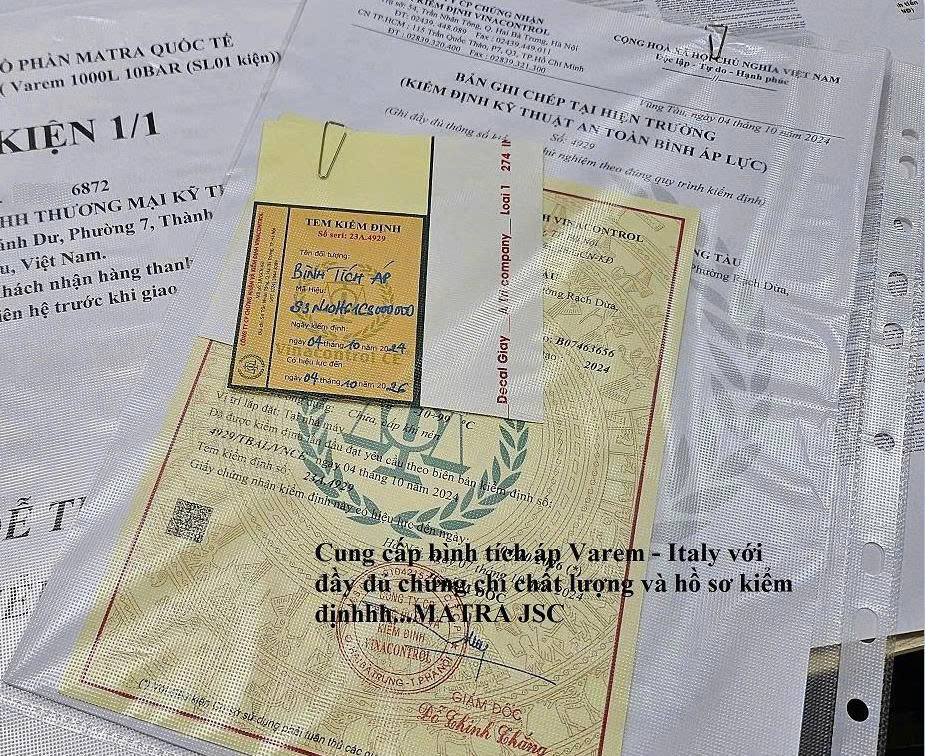 Ổ PHẦN MATRA QUỐC TẾ
( Varem 1000L 10BAR (SL01 kiện))
KIỆN 1/1
6872
HH THƯƠNG MẠI KỸ T
ánh Dư, Phường 7, Thành
u, Việt Nam.
hách nhận hàng thanh
iên hệ trước khi giao
DỄ
CP CHỨNG NHẬN
KIỂM ĐỊNH VINACONTROL
Trụ sở: 54, Trần Nhân Tông, Q. Hai Bà Trưng, Hà Nội
ĐT: 02439.448.089 Fax : 02439.449.011
CN TP.HCM : 115 Trần Quốc Thảo, P7, Q3, TP.Hồ Chí Minh
ĐT : 02839.320.400 Fax : 02839.321.300
CỘNG HOÀ XÃ HỘI CHỦ NGHĨA VIỆT NAM
Độc lập - Tự do - Hạnh phúc
Vũng Tàu, ngày 04 tháng 10 năm 2024
BẢN GHI CHÉP TẠI HIỆN TRƯỜNG
(KIỂM ĐỊNH KỸ THUẬT AN TOÀN BÌNH ÁP LỰC)
Số: 4929
(Ghi đầy đủ thông số nghiệm theo đúng quy trình kiểm định)
TEM KIỂM ĐỊNH
Số seri: 23A.4929
Tên đối tượng:
BÌNH TÍCH ÁP
Mã Hiệu:
S3N10H61CS000000
Ngày kiểm định:
ngày 04 tháng 10 năm 2024
Vinacontrol CE
Có hiệu lực đến
ngày 04 tháng 10 năm 2026
CÔNG TY CP CHỨNG NHẬN VÀ KIỂM ĐỊNH VINACONTROL
Decal Giay fri company Loai 1 274
H VINACONTROL
CN-KĐ
NG TÀU
Phường Rạch Dừa,
ờng Rạch Dừa,
B07463656
2024
10-99 °C
Vị trí lắp đặt: Tại nhà máy
Chứa, cấp khí nén
Đã được kiểm định lần đầu đạt yêu cầu theo biên bản kiểm định số:
4929/TBAL/VNCE ngày 04 tháng 10 năm 2024
Tem kiểm định số: 23A.4929
Giấy chứng nhận kiểm định này có hiệu lực đến ngày
Cung cấp bình tích áp Varem - Italy với
đầy đủ chứng chỉ chất lượng và hồ sơ kiểm
địnhhh...MATRA JSC
CÔNG TY CP
KIỂM ĐỊNH
VINACONTROL
GIÁM ĐỐC
Đỗ Chinh Chắng